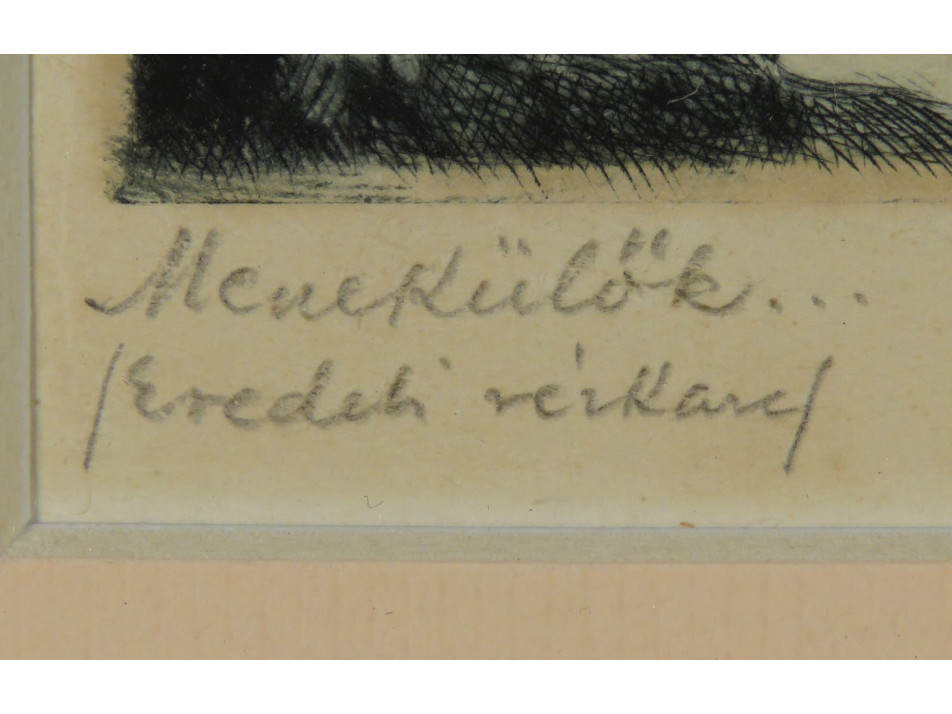 Menekülők...
/Eredeti rézkarc/